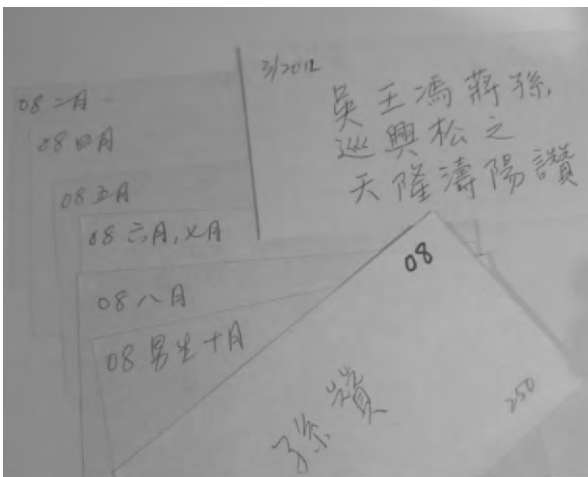 08 二月
08 四月
08 五月
08 六月,七月
08 八月
08 男生十月
3/2012
吳王馮蔣孫,
巡興松之
天隆濤陽讚
08
孫讚
250